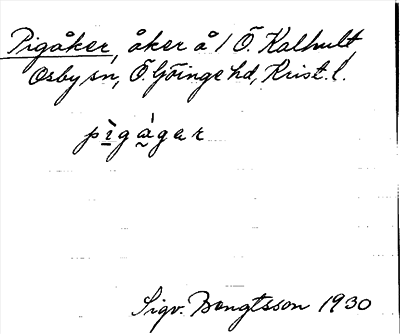 Pigåker, åker å 1 Ö. Kalhult,
Osby sn, Ö. Göinge hd, Krist. l.
pìgágar
Sigv. Bengtsson 1930